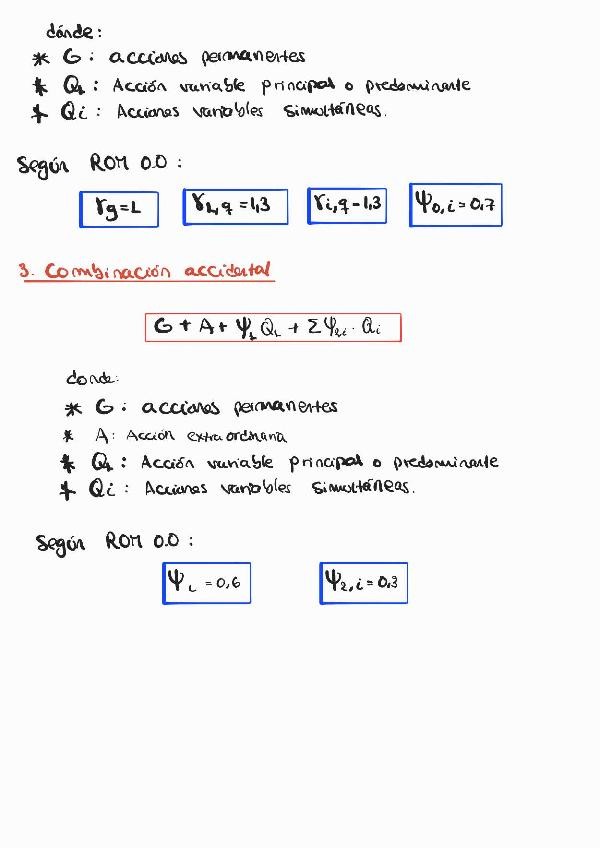 dónde:
* G: acciones permanentes
* Q₁: Acción variable principal o predominante
* Qi: Acciones variables simultáneas.
Según ROM 0.0:
γg=1 γ1,q=1,3 γi,q=1,3 Ψ0,i=0,7
3. Combinación accidental
G + A + Ψ₁ Q₁ + ΣΨ2i · Qi
donde:
* G: acciones permanentes
* A: Acción extraordinaria
* Q₁: Acción variable principal o predominante
* Qi: Acciones variables simultáneas.
Según ROM 0.0:
Ψ₁ = 0,6 Ψ2,i = 0,3